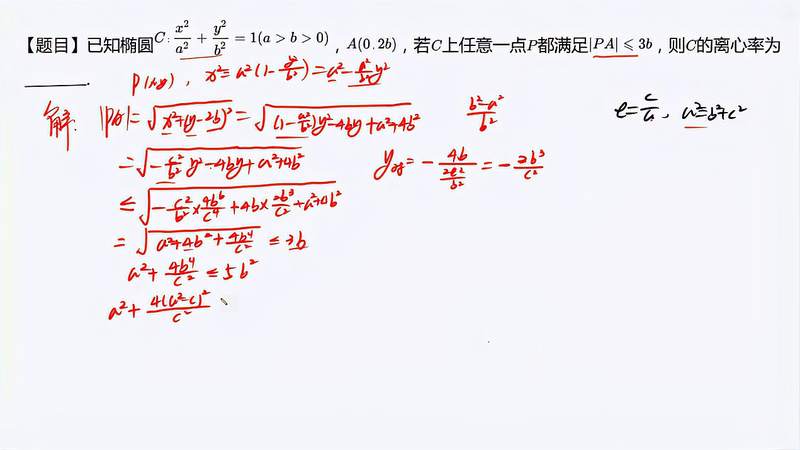 【题目】已知椭圆 $C: \frac{x^2}{a^2}+\frac{y^2}{b^2}=1(a>b>0)$，$A(0.2b)$，若C上任意一点P都满足$|PA|\leqslant 3b$，则C的离心率为
______.
$P(x,y)$, $x^2=a^2(1-\frac{y^2}{b^2})=a^2-\frac{a^2}{b^2}y^2$
解: $|PA|=\sqrt{x^2+(y-2b)^2}=\sqrt{(1-\frac{a^2}{b^2})y^2-4by+a^2+4b^2}$ $\frac{b^2-a^2}{b^2}$ $e=\frac{c}{a}$, $a^2=b^2+c^2$
$=\sqrt{-\frac{c^2}{b^2}y^2-4by+a^2+4b^2}$ $y_{对}=-\frac{4b}{\frac{2c^2}{b^2}}=-\frac{2b^3}{c^2}$
$\leq\sqrt{-\frac{c^2}{b^2}\times\frac{4b^6}{c^4}+4b\times\frac{2b^3}{c^2}+a^2+4b^2}$
$=\sqrt{a^2+4b^2+\frac{4b^4}{c^2}}\leq 3b$
$a^2+\frac{4b^4}{c^2}\leq 5b^2$
$a^2+\frac{4(a^2-c)^2}{c^2}$